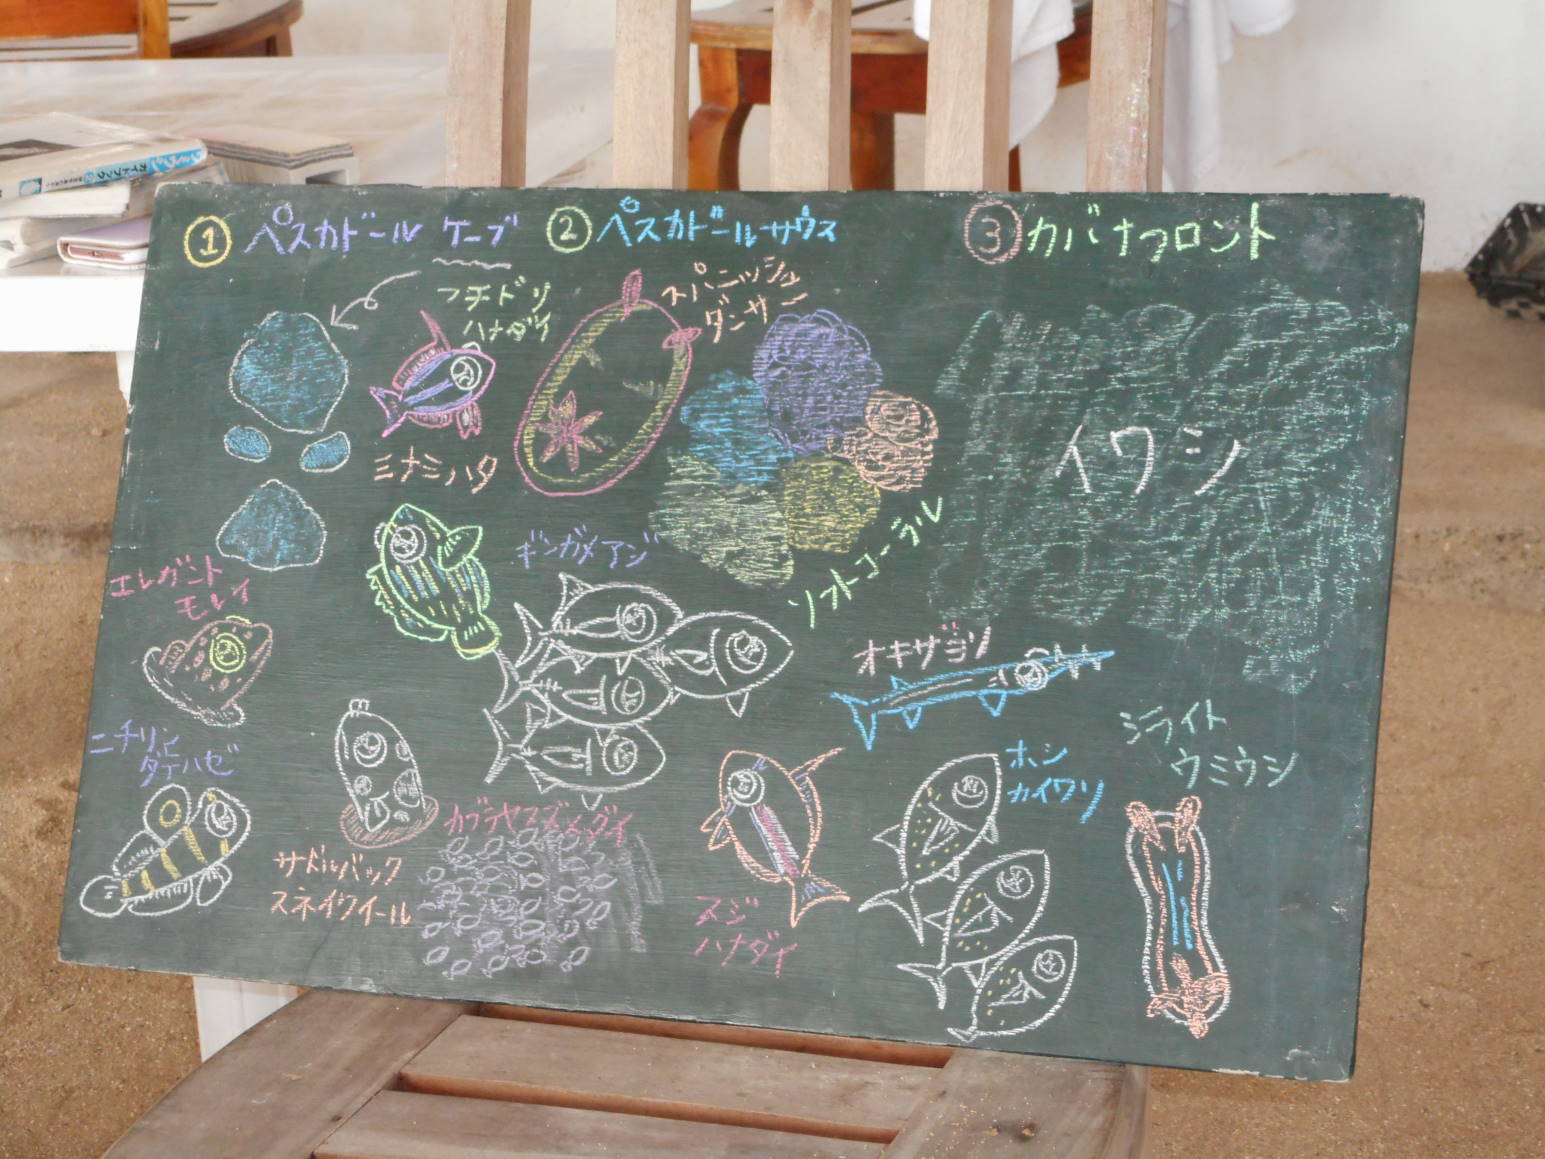 ① ペスカドール ケーブ
② ペスカドールサウス
③ カバナフロント
フチドリ
ハナダイ
スパニッシュ
ダンサー
ミナミハタ
イワシ
ギンガメアジ
ソフトコーラル
エレガント
モレイ
オキザヨリ
ニチリン
ダテハゼ
ホシ
カイワリ
シライト
ウミウシ
サドルバック
スネイクイール
カブラヤスズメダイ
スジ
ハナダイ